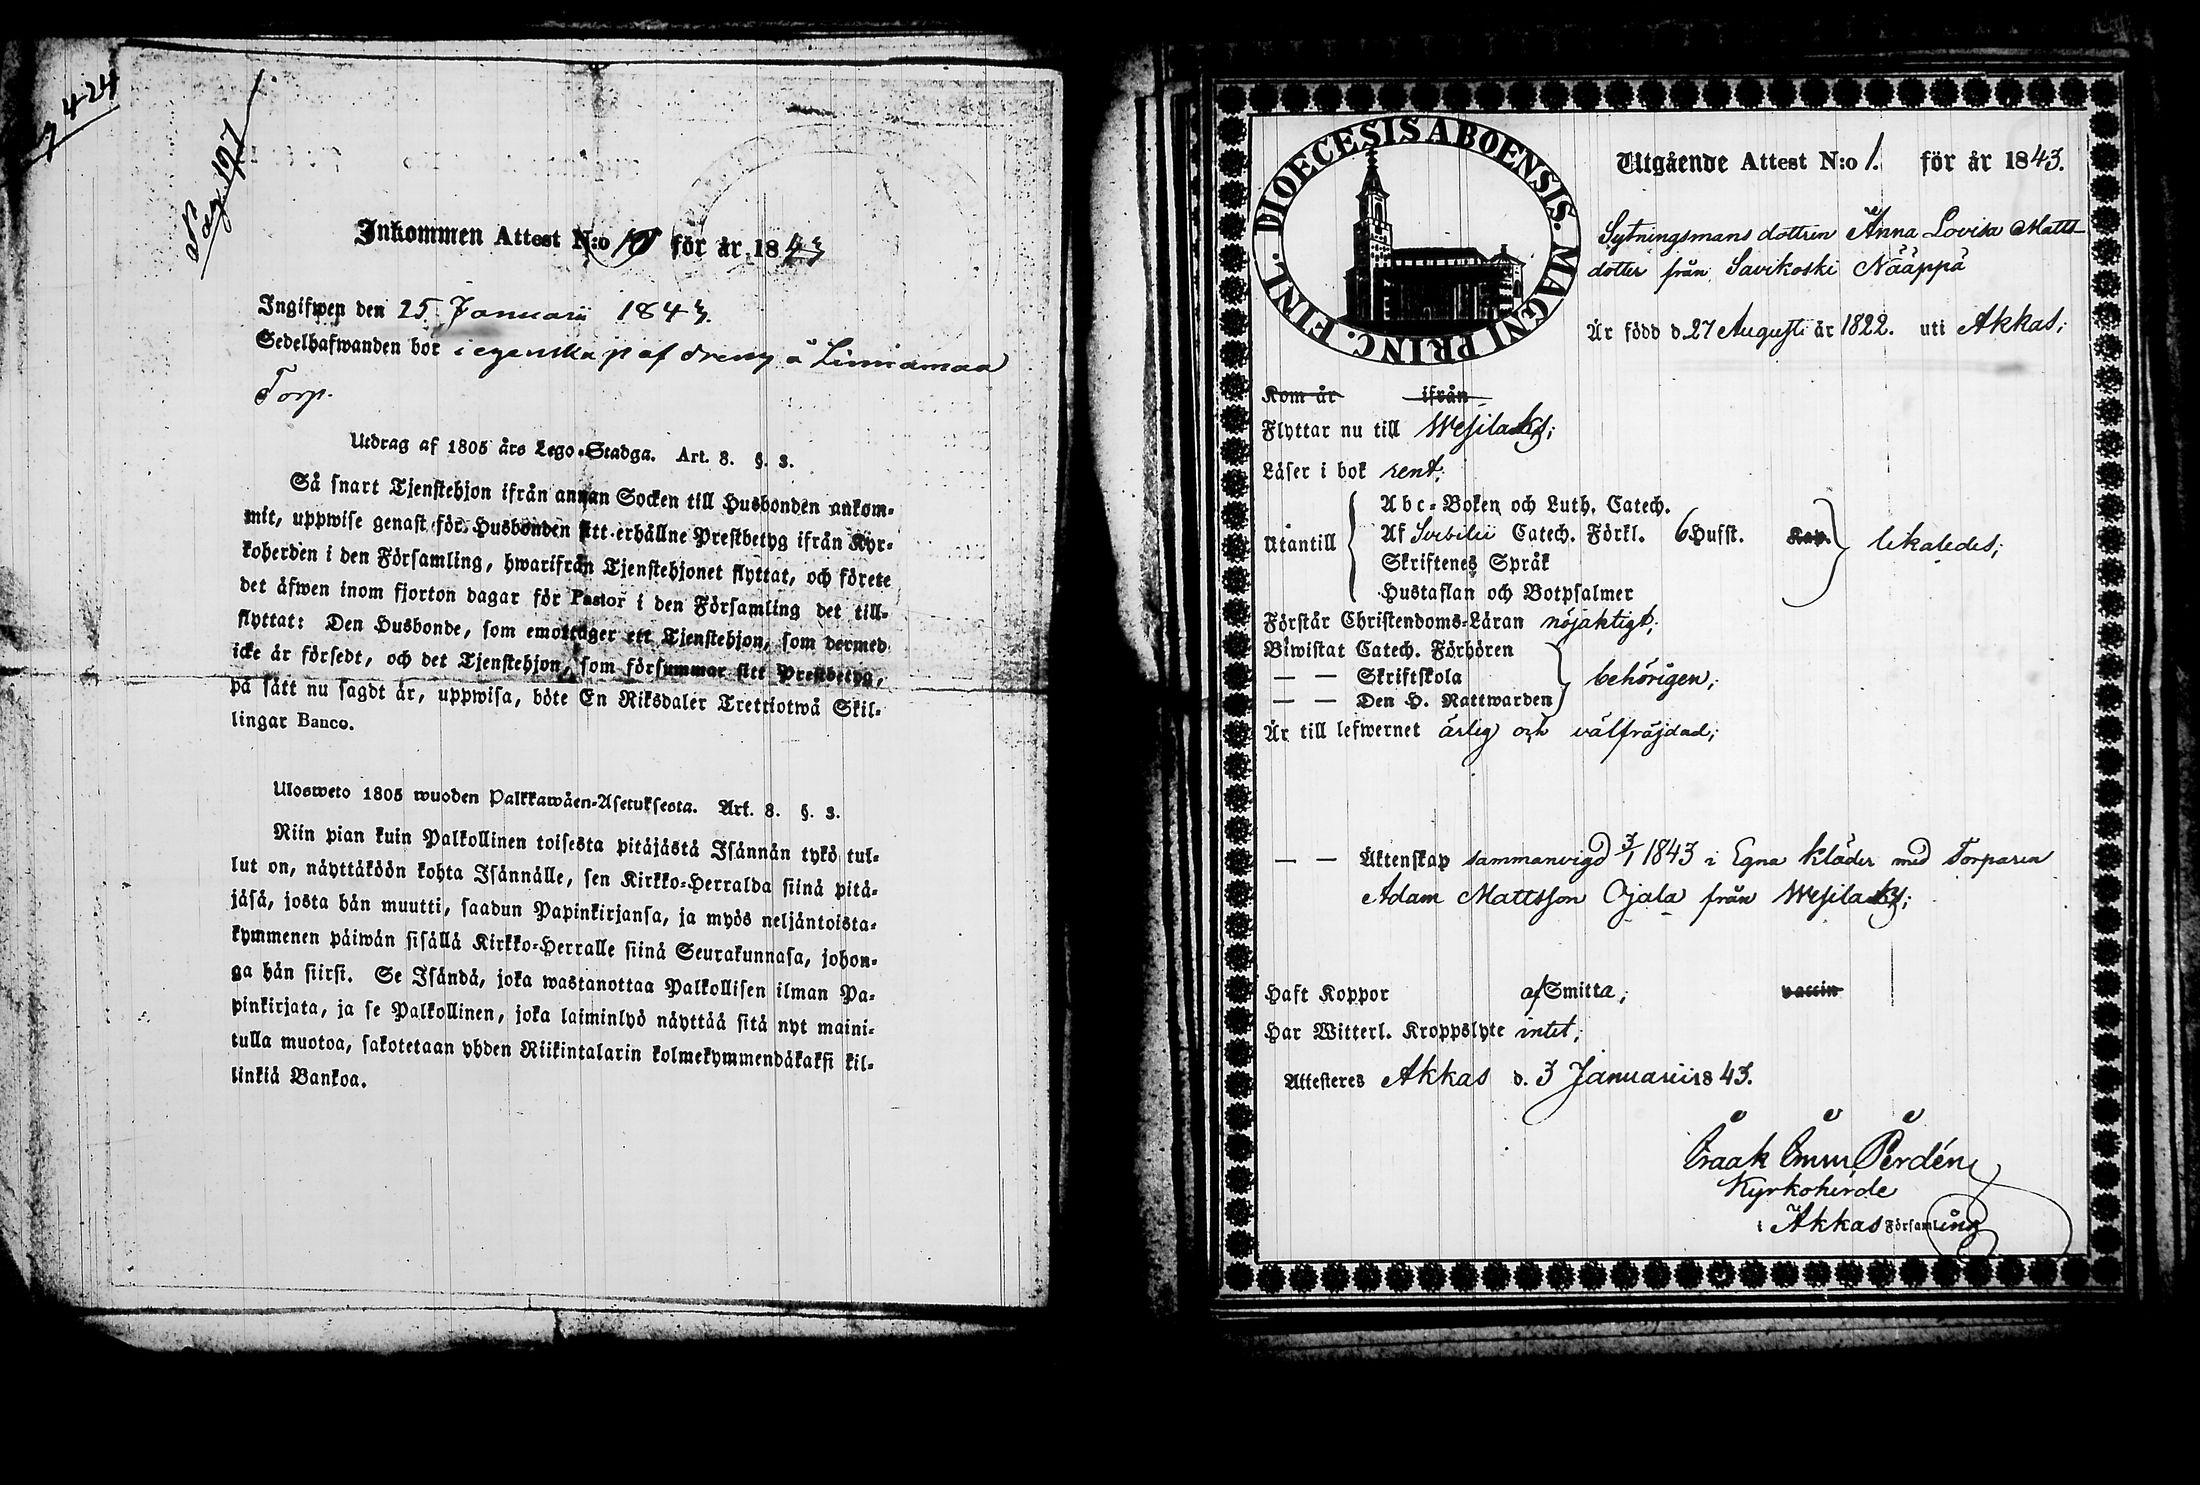 424
Pag. 197
Inkommen Attest N:o 10 för år 1843
Ingifwen den 25 Januari 1843.
Sedelhafwanden bor i egenskap af dreng å Linnamaa
Torp.
Utdrag af 1805 års Lego-Stadga. Art. 8. §. 3.
Så snart Tjenstehjon ifrån annan Socken till Husbonden ankom-
mit, uppwise genast för Husbonden sitt erhållne Prestbetyg ifrån Kyr-
koherden i den Församling, hwarifrån Tjenstehjonet flyttat, och förete
det äfwen inom fjorton dagar för Pastor i den Församling det till-
flyttat: Den Husbonde, som emottager ett Tjenstehjon, som dermed
icke är försedt, och det Tjenstehjon, som försummar sitt Prestbetyg,
på sätt nu sagdt är, uppwisa, böte En Riksdaler Trettiotwå Skil-
lingar Banco.
Ulosweto 1805 wuoden Palkkawäen-Asetuksesta. Art. 8. §. 3.
Niin pian kuin Palkollinen toisesta pitäjästä Isännän tykö tul-
lut on, näyttäköön kohta Isännälle, sen Kirkko-Herralda siinä pitä-
jäsä, josta hän muutti, saadun Papinkirjansa, ja myös neljäntoista-
kymmenen päiwän sisällä Kirkko-Herralle siinä Seurakunnasa, johon-
ga hän siirsi. Se Isändä, joka wastanottaa Palkollisen ilman Pa-
pinkirjata, ja se Palkollinen, joka laiminlyö näyttää sitä nyt maini-
tulla muotoa, sakotetaan yhden Riikintalarin kolmekymmendäkaksi kil-
linkiä Bankoa.
DIOECESIS ABOENSIS. MAGNI PRINC. FINL.
Utgående Attest N:o 1. för år 1843.
Sytningsmans dottren Anna Lovisa Matts-
dotter från Savikoski Nääppä
Är född d. 27 Augusti år 1822. uti Akkas;
Kom år ifrån
Flyttar nu till Wesilaks;
Läser i bok rent;
Utantill
Abc-Boken och Luth. Catech.
Af Svebilii Catech. Förkl. 6 Hufst. Kap.
Skriftenes Språk
Hustaflan och Botpsalmer
likaledes;
Förstår Christendoms-Läran nöjaktigt;
Biwistat Catech. Förhören
— — Skriftskola
— — Den H. Nattwarden
behörigen;
Är till lefwernet ärlig och välfräjdad;
— — Äktenskap sammanvigd 3/1 1843 i Egna kläder med Torparen
Adam Mattsson Ojala från Wesilaks;
Haft Koppor af Smitta; vaccin
Har Witterl. Kroppslyte intet;
Attesteres Akkas d. 3 Januarii 1843.
Isaak Emm. Perdén
Kyrkoherde
i Akkas Församling